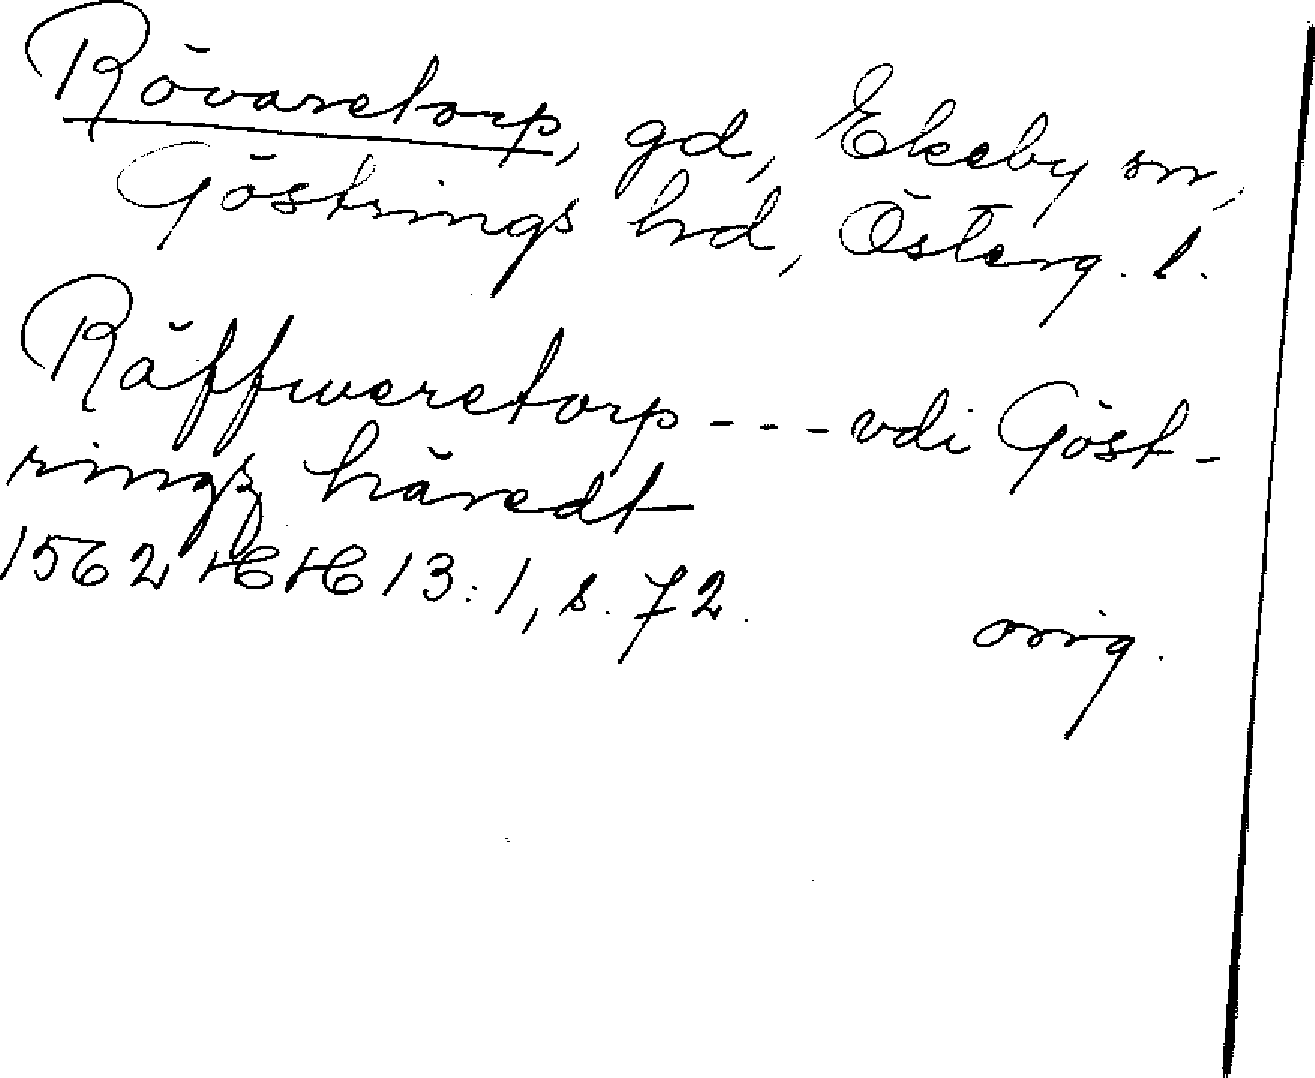 Rövaretorp, gd, Ekeby sn,
Göstrings hd, Österg. l.
Räffweretorp --- vdi Göst-
ringz häredt
1562 HH 13:1, s. 72.
orig.